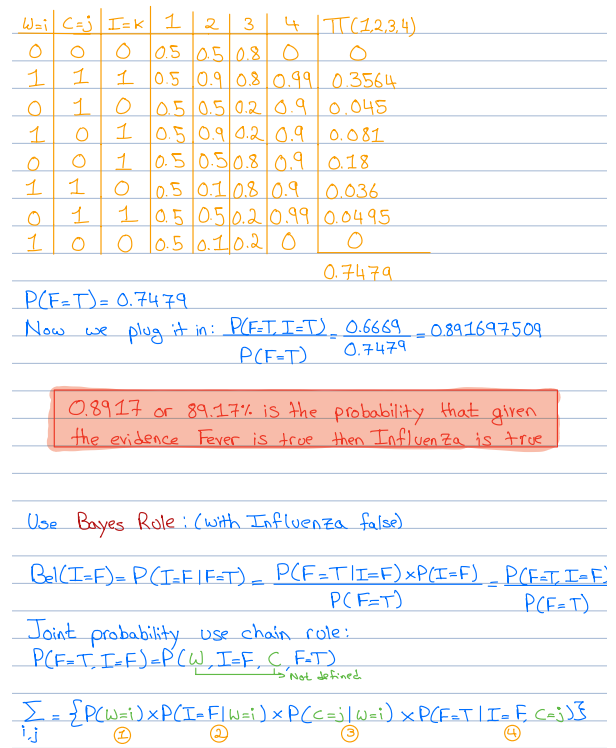 W=i C=j I=K 1 2 3 4 π(1,2,3,4)
0 0 0 0.5 0.5 0.8 0 0
1 1 1 0.5 0.9 0.8 0.99 0.3564
0 1 0 0.5 0.5 0.2 0.9 0.045
1 0 1 0.5 0.9 0.2 0.9 0.081
0 0 1 0.5 0.5 0.8 0.9 0.18
1 1 0 0.5 0.1 0.8 0.9 0.036
0 1 1 0.5 0.5 0.2 0.99 0.0495
1 0 0 0.5 0.1 0.2 0 0
0.7479
P(F=T)= 0.7479
Now we plug it in: P(F=T, I=T) / P(F=T) = 0.6669 / 0.7479 = 0.891697509
0.8917 or 89.17% is the probability that given
the evidence Fever is true then Influenza is true
Use Bayes Role: (with Influenza false)
Bel(I=F)= P(I=F|F=T) = P(F=T|I=F)×P(I=F) / P(F=T) = P(F=T, I=F) / P(F=T)
Joint probability use chain role:
P(F=T, I=F)=P(W, I=F, C, F=T)
Not defined
Σ = {P(W=i)×P(I=F|W=i)×P(C=j|W=i)×P(F=T|I=F, C=j)}
i,j ① ② ③ ④